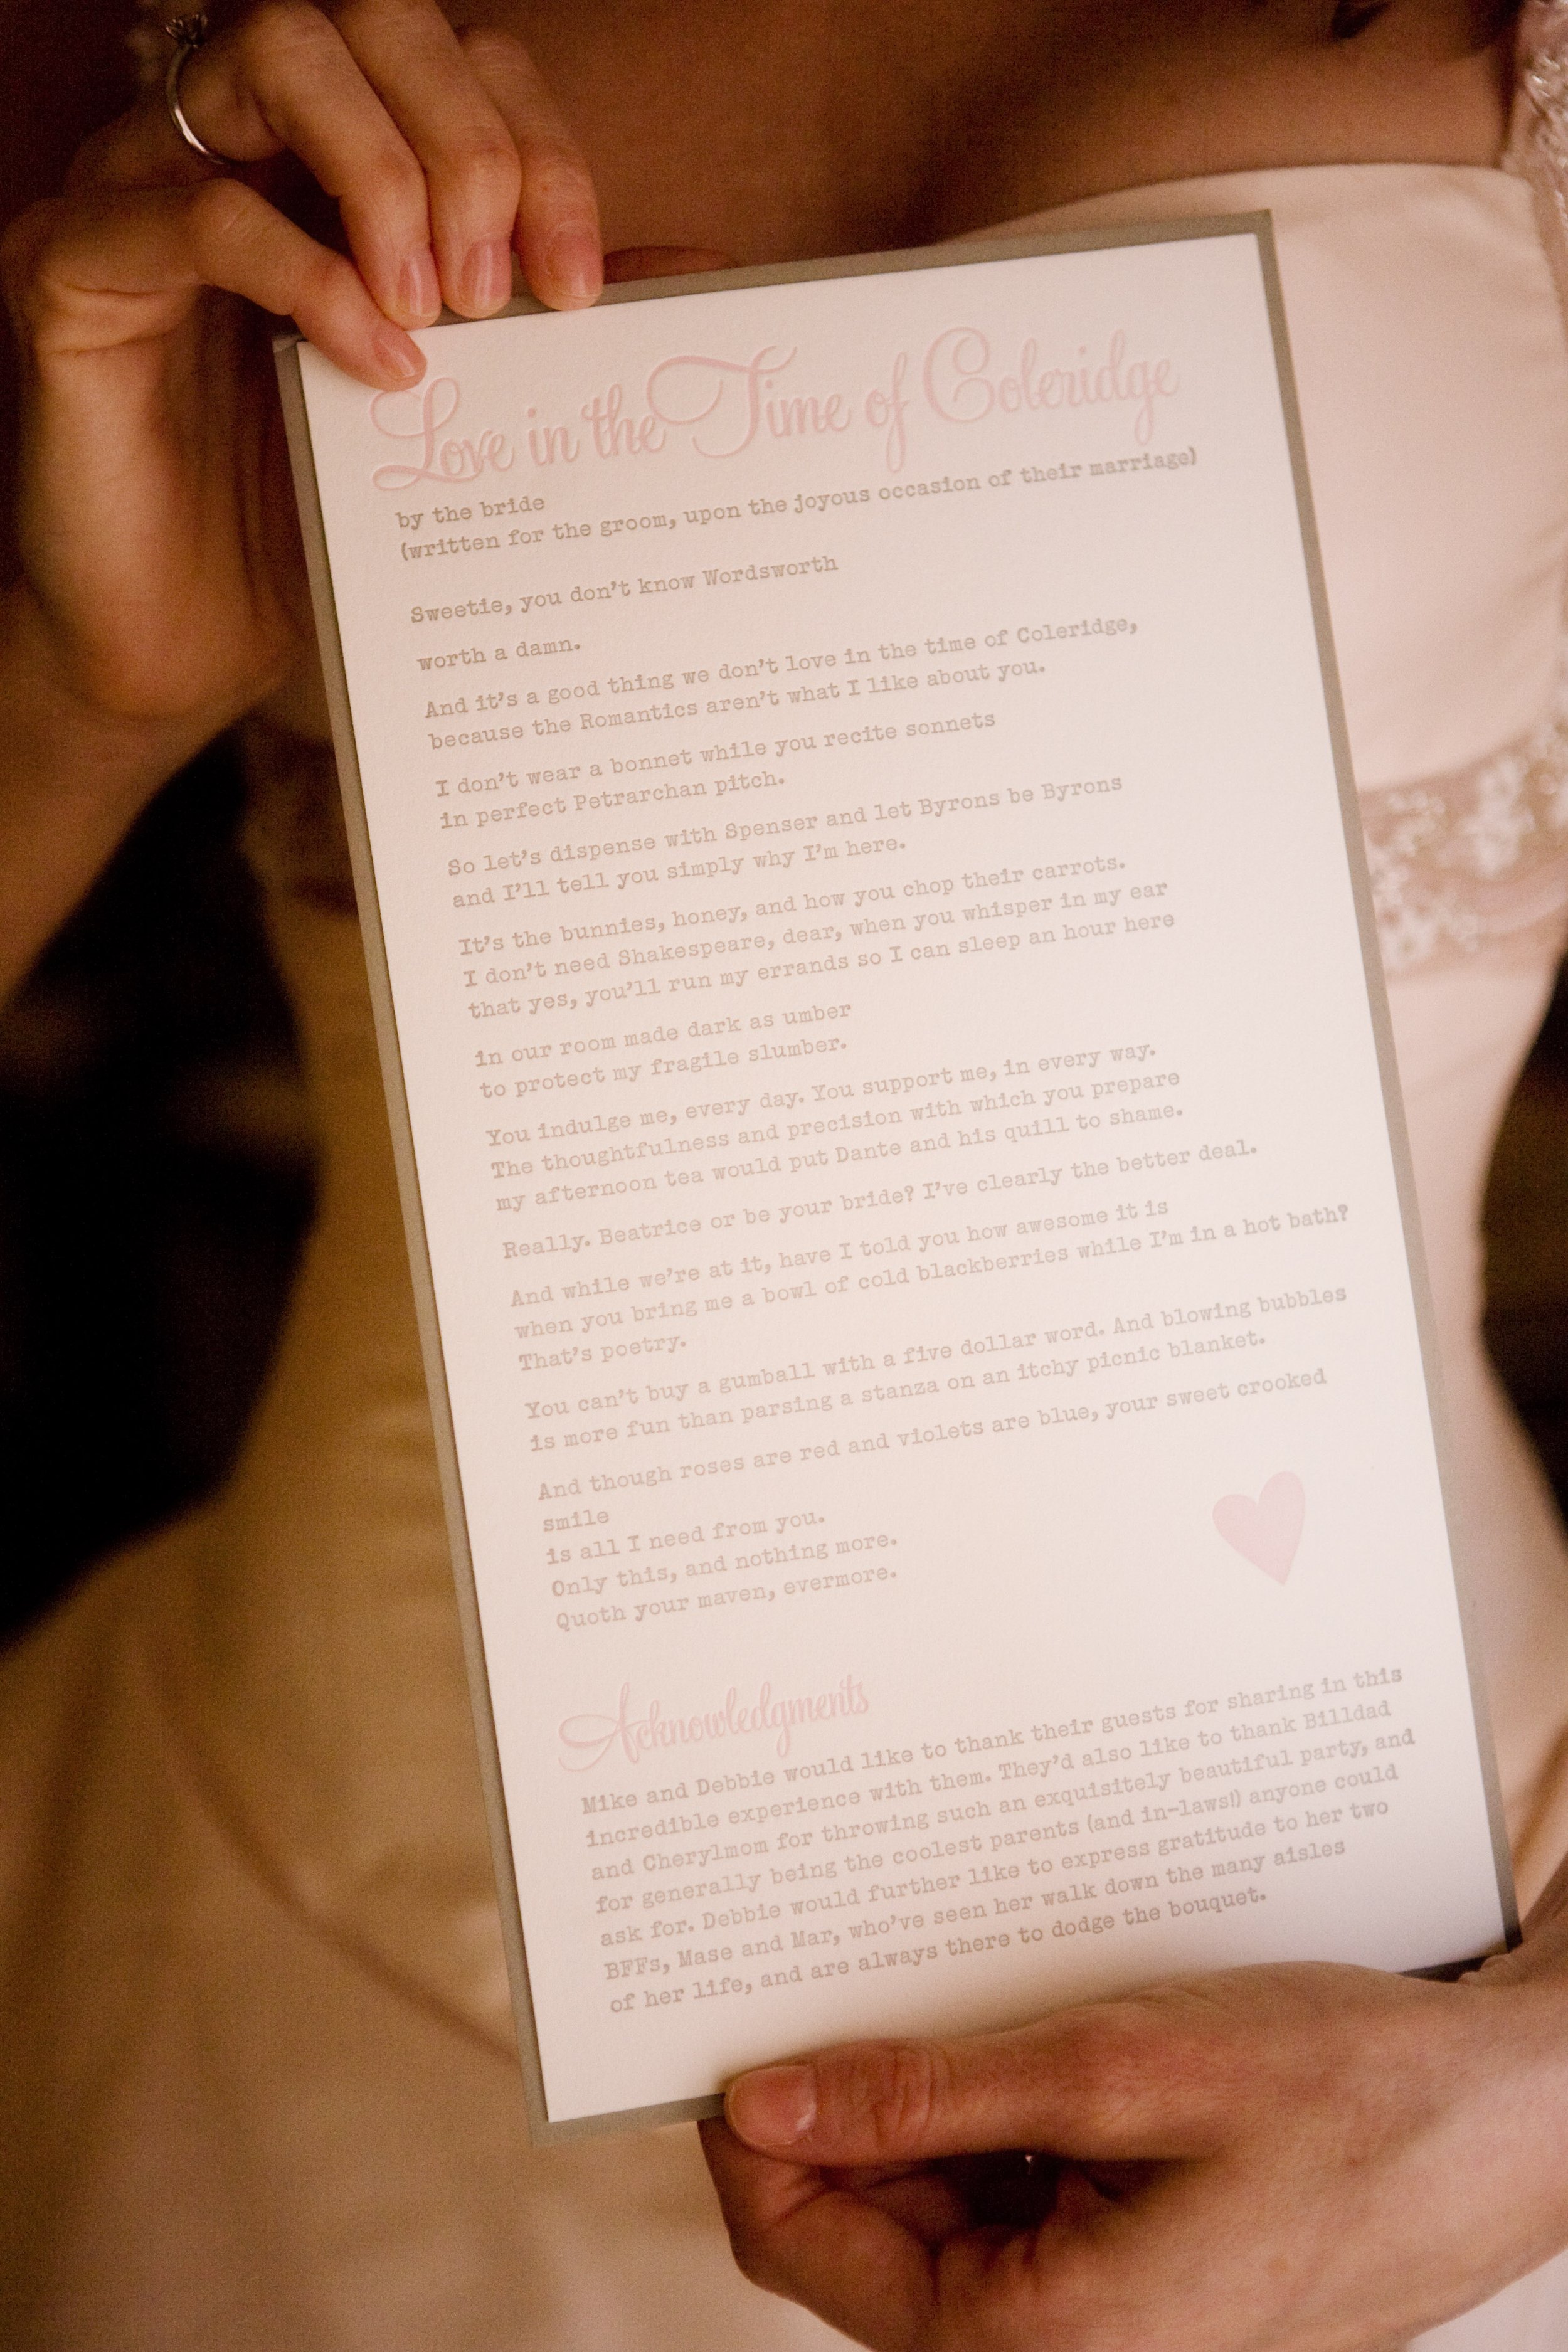 Love in the Time of Coleridge
by the bride
(written for the groom, upon the joyous occasion of their marriage)
Sweetie, you don't know Wordsworth
worth a damn.
And it's a good thing we don't love in the time of Coleridge,
because the Romantics aren't what I like about you.
I don't wear a bonnet while you recite sonnets
in perfect Petrarchan pitch.
So let's dispense with Spenser and let Byrons be Byrons
and I'll tell you simply why I'm here.
It's the bunnies, honey, and how you chop their carrots.
I don't need Shakespeare, dear, when you whisper in my ear
that yes, you'll run my errands so I can sleep an hour here
in our room made dark as umber
to protect my fragile slumber.
You indulge me, every day. You support me, in every way.
The thoughtfulness and precision with which you prepare
my afternoon tea would put Dante and his quill to shame.
Really. Beatrice or be your bride? I've clearly the better deal.
And while we're at it, have I told you how awesome it is
when you bring me a bowl of cold blackberries while I'm in a hot bath?
That's poetry.
You can't buy a gumball with a five dollar word. And blowing bubbles
is more fun than parsing a stanza on an itchy picnic blanket.
And though roses are red and violets are blue, your sweet crooked
smile
is all I need from you.
Only this, and nothing more.
Quoth your maven, evermore.
Acknowledgments
Mike and Debbie would like to thank their guests for sharing in this
incredible experience with them. They'd also like to thank Billdad
and Cherylmom for throwing such an exquisitely beautiful party, and
for generally being the coolest parents (and in-laws!) anyone could
ask for. Debbie would further like to express gratitude to her two
BFFs, Mase and Mar, who've seen her walk down the many aisles
of her life, and are always there to dodge the bouquet.